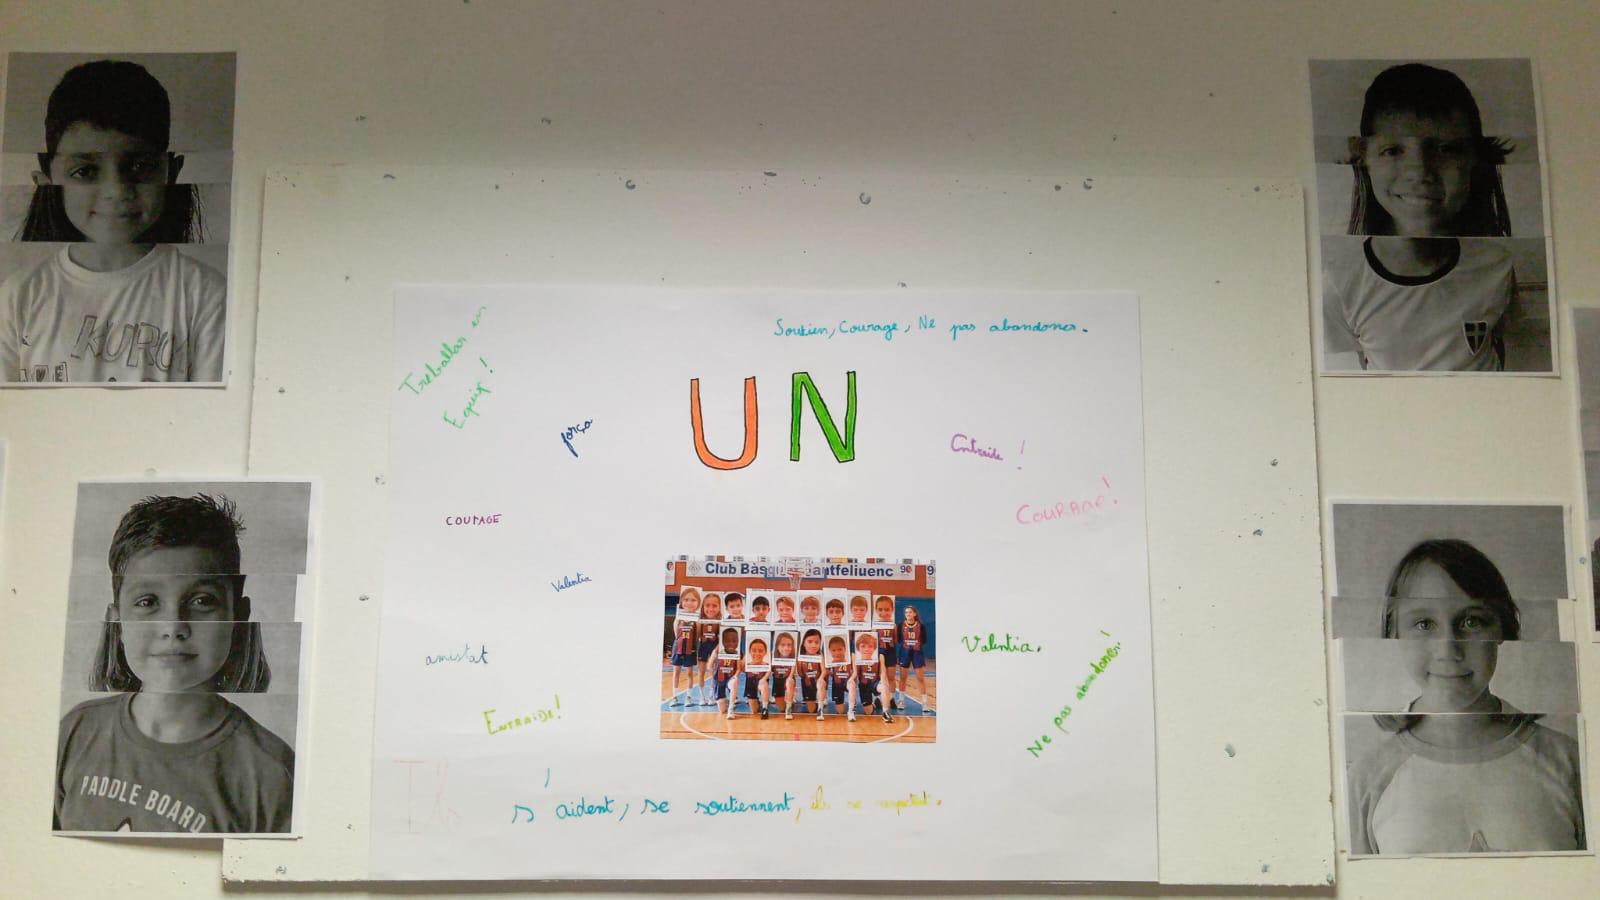 Soutien, Courage, Ne pas abandoner.
Treballar en
Equip!
UN
força
Entraide !
COURAGE!
COURAGE
Club Bàsquet Santfeliuenc 90
Valentia
Valentia.
amistat
Ne pas abandoné!
ENTRAIDE!
Ils
s'aident, se soutiennent, ils se respectent.
PADDLE BOARD